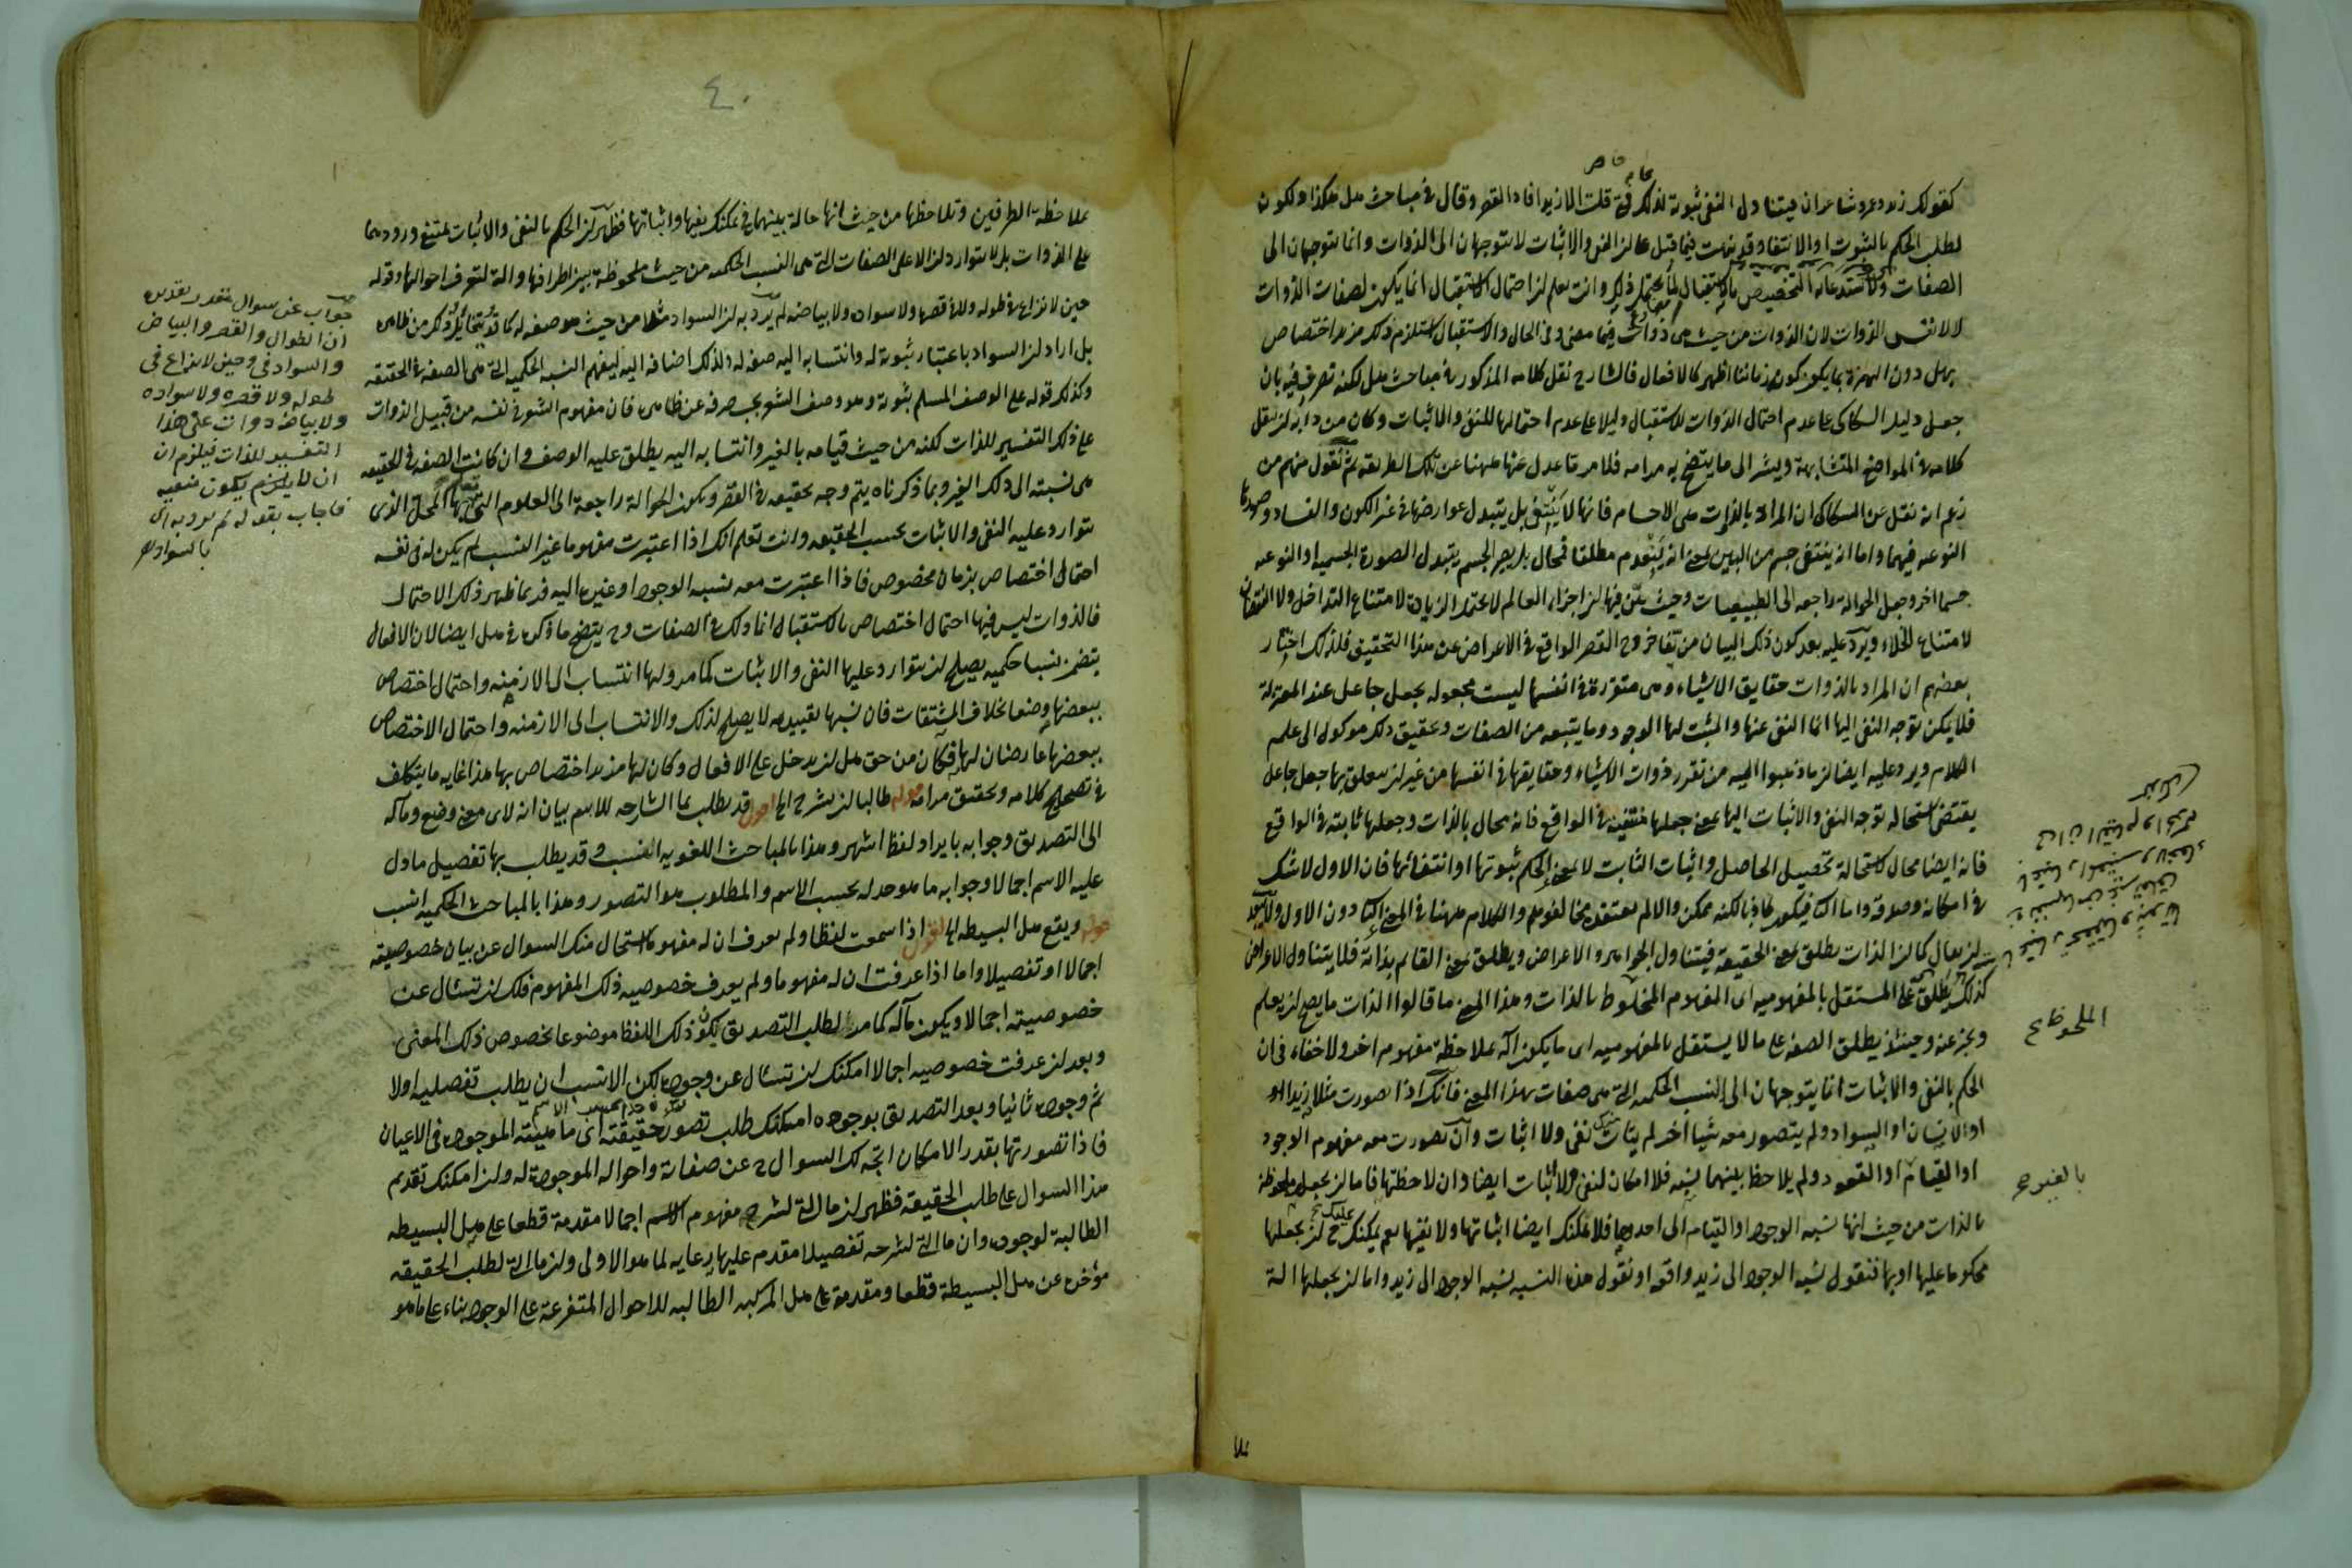 كقولك زيد وعمرو شاعران فيتناول النفي ثبوته لذلك فمتى قلت الا زيد افاد القصر وقال في مباحث هل هكذا ولكون
لطلب الحكم بالثبوت او الانتفاء وقد نبهت فيما قبل على ان النفي والاثبات لا يتوجهان الى الذوات وانما يتوجهان الى
الصفات ولاستدعائه التخصيص بالاستقبال لما يحتمل ذلك وانت تعلم ان احتمال الاستقبال انما يكون لصفات الذوات
لا لانفس الذوات لان الذوات من حيث هي ذوات فيما مضى وفي الحال والاستقبال استلزم ذلك مزيد اختصاص
بهل دون الهمزة بما يكون كونه زمانيا اظهر كالافعال فالشارح نقل كلامه المذكور في مباحث هل لكنه تصرف فيه بان
جعل دليل السكاكي على عدم احتمال الذوات للاستقبال دليلا على عدم احتمالها للنفي والاثبات وكان من دابه ان ينقل
كلامه في المواضع المتشابهة ويشير الى ما يتضح به مرامه فلامر ما عدل عنها ههنا عن تلك الطريقة ثم نقول منهم من
زعم انه نقل عن السكاكي ان المراد بالذوات هي الاجسام فانها لا ينتفي بل يتبدل عوارضها في غير الكون والفساد وصورها
النوعية فيهما واما انه ينتفي جسم من البين بمعنى انه ينعدم مطلقا فمحال بل يصير الجسم يتبدل الصورة الجسمية او النوعية
جسما اخر وجعل الحوالة راجعة الى الطبيعيات وحيث بين فيها ان اجزاء العالم لا يحتمل الزيادة لامتناع التداخل ولا النقصان
لامتناع الخلاء ويرد عليه بعد كون ذلك البيان من خروج القصر الواقع في الاعراض عن هذا التحقيق فلذلك اختار
بعضهم ان المراد بالذوات حقايق الاشياء وهي متقررة في انفسها ليست مجعولة بجعل جاعل عند المعتزلة
فلا يمكن توجه النفي اليها انما النفي عنها والمثبت لها الوجود وما يتبعه من الصفات وتحقيق ذلك موكول الى علم
الكلام ويرد عليه ايضا ان ما ذهبوا اليه من تقرر ذوات الاشياء وحقايقها في انفسها من غير ان يتعلق بها جعل جاعل
يقتضي استحالة توجه النفي والاثبات اليها بمعنى جعلها منتفية في الواقع فانه محال بالذات وجعلها ثابتة في الواقع
فانه ايضا محال لاستحالة تحصيل الحاصل واثبات الثابت لا بمعنى الحكم ثبوتها او انتفائها فان الاول لا شك
في امكانه وصدقه واما الثاني فيكون كاذبا لكنه ممكن والا لم يعتقده مخالفوهم والكلام ههنا في المعنى الثاني دون الاول
ان يقال كما ان الذات يطلق بمعنى الحقيقة فيتناول الجواهر والاعراض ويطلق بمعنى القائم بذاته فلا يتناول الاعراض
كذلك يطلق على المستقل بالمفهومية اي المفهوم الملحوظ بالذات وهذا المعنى ما قالوا الذات ما يصح ان يعلم
ويخبر عنه وحينئذ يطلق الصفة على ما لا يستقل بالمفهومية اي ما يكون آلة لملاحظة مفهوم اخر ولا خفاء في ان
الحكم بالنفي والاثبات انما يتوجهان الى النسب الحكمية التي هي صفات بهذا المعنى فانك اذا تصورت مثلا زيدا
او الانسان او السواد ولم يتصور معه شيئا اخر لم يتات نفي ولا اثبات وان تصورت معه مفهوم الوجود
او القيام او القعود ولم يلاحظ بينهما نسبة فلا امكان لنفي ولا اثبات ايضا وان لاحظتها فاما ان يجعل ملحوظة
بالذات من حيث انها نسبة الوجود او القيام الى احدهما فلا يمكنك ايضا اثباتها ولا نفيها نعم يمكنك ح ان يجعلها
محكوما عليها او بها فتقول نسبة الوجود الى زيد واقعة او تقول هذه النسبة نسبة الوجود الى زيد واما ان يجعلها آلة
الملحوظ
٤٠
لملاحظة الطرفين وتلاحظها من حيث انها حالة بينهما فيمكنك نفيها واثباتها فظهر ان الحكم بالنفي والاثبات يمتنع ورودهما
على الذوات بل لا يتواردان الا على الصفات التي هي النسب الحكمية من حيث ملحوظة بين اطرافها وآلة لتعرف احوالها وقوله
حين لا نزاع في طوله ولا قصره ولا سواده ولا بياضه لم يرد به ان السواد مثلا من حيث هو صفة له كما يتخايل ذلك من ظاهره
بل اراد ان السواد باعتبار ثبوته له وانتسابه اليه صفة له ولذلك اضافه اليه ليفهم النسبة الحكمية التي هي الصفة في الحقيقة
وكذلك قوله على الوصف المسلم ثبوته وهو وصف الشعر يجب صرفه عن ظاهره فان مفهوم الشعر في نفسه من قبيل الذوات
على ذلك التفسير للذات لكنه من حيث قيامه بالغير وانتسابه اليه يطلق عليه الوصف وان كانت الصفة في الحقيقة
هي نسبته الى ذلك الغير وبما ذكرناه يتم وجه تحقيقه في القصر ويكون الحوالة راجعة الى العلوم التي المحل الذي
يتوارد عليه النفي والاثبات بحسب الحقيقة وانت تعلم انك اذا اعتبرت مفهوما غير النسب لم يكن له في نفسه
احتمال اختصاص بزمان مخصوص فاذا اعتبرت معه نسبة الوجود او غيره اليه فربما ظهر ذلك الاحتمال
فالذوات ليس فيها احتمال اختصاص بالاستقبال انما ذلك في الصفات وح يتضح ما ذكره في هل ايضا لان الافعال
يتضمن نسبا حكمية يصلح ان يتوارد عليها النفي والاثبات كما مر ولها انتساب الى الازمنة واحتمال اختصاص
ببعضها وضعا بخلاف المشتقات فان نسبها تقييدية لا يصلح لذلك والانتساب الى الازمنة واحتمال الاختصاص
ببعضها عارضان لها فكان من حق هل ان يدخل على الافعال وكان لها مزيد اختصاص بها هذا غاية ما يتكلف
في تصحيح كلامه وتحقيق مرامه قوله طالبا ان يشرح الخ اقول قد يطلب بما الشارحة للاسم بيان انه لاي معنى وضع ومآله
الى التصديق وجوابه بايراد لفظ اشهر وهذا بالمباحث اللغوية انسب وقد يطلب بها تفصيل ما دل
عليه الاسم اجمالا وجوابه ما هو حد له بحسب الاسم والمطلوب هو التصور وهذا بالمباحث الحكمية انسب
قوله ويقع هل البسيطة الخ اقول اذا سمعت لفظا ولم يعرف ان له مفهوما استحال منك السوال عن بيان خصوصيته
اجمالا او تفصيلا واما اذا عرفت ان له مفهوما ولم يعرف خصوصية ذلك المفهوم فلك ان تسئال عن
خصوصيته اجمالا ويكون مآله كما مر الى طلب التصديق بكون ذلك اللفظ موضوعا بخصوص ذلك المعنى
وبعد ان عرفت خصوصيته اجمالا امكنك ان تسئال عن وجوده لكن الانسب ان يطلب تفصليه اولا
ثم وجوده ثانيا وبعد التصديق بوجوده امكنك طلب تصور حقيقته اي ماهيته الموجودة في الاعيان
فاذا تصورتها بقدر الامكان اتجه لك السوال ح عن صفاته واحواله الموجودة له وان امكنك تقديم
هذا السوال على طلب الحقيقة فظهر ان ما التي لشرح مفهوم الاسم اجمالا مقدمة قطعا على هل البسيطة
الطالبة لوجوده وان ما التي لشرحه تفصيلا مقدم عليها رعاية لما هو الاولى وان ما التي لطلب الحقيقة
مؤخرة عن هل البسيطة قطعا ومقدمة على هل المركبة الطالبة للاحوال المتفرعة على الوجود بناء على ما هو
جواب عن سوال مقدر تقديره
ان الطوال والقصر والبياض
والسواد في وحين لا نزاع في
طوله ولا قصره ولا سواده
ولا بياضه ذوات على هذا
التفسير للذات فيلزم ان
ان لا يكون منفية
فاجاب بقوله لم يرد به ان
السواد الخ